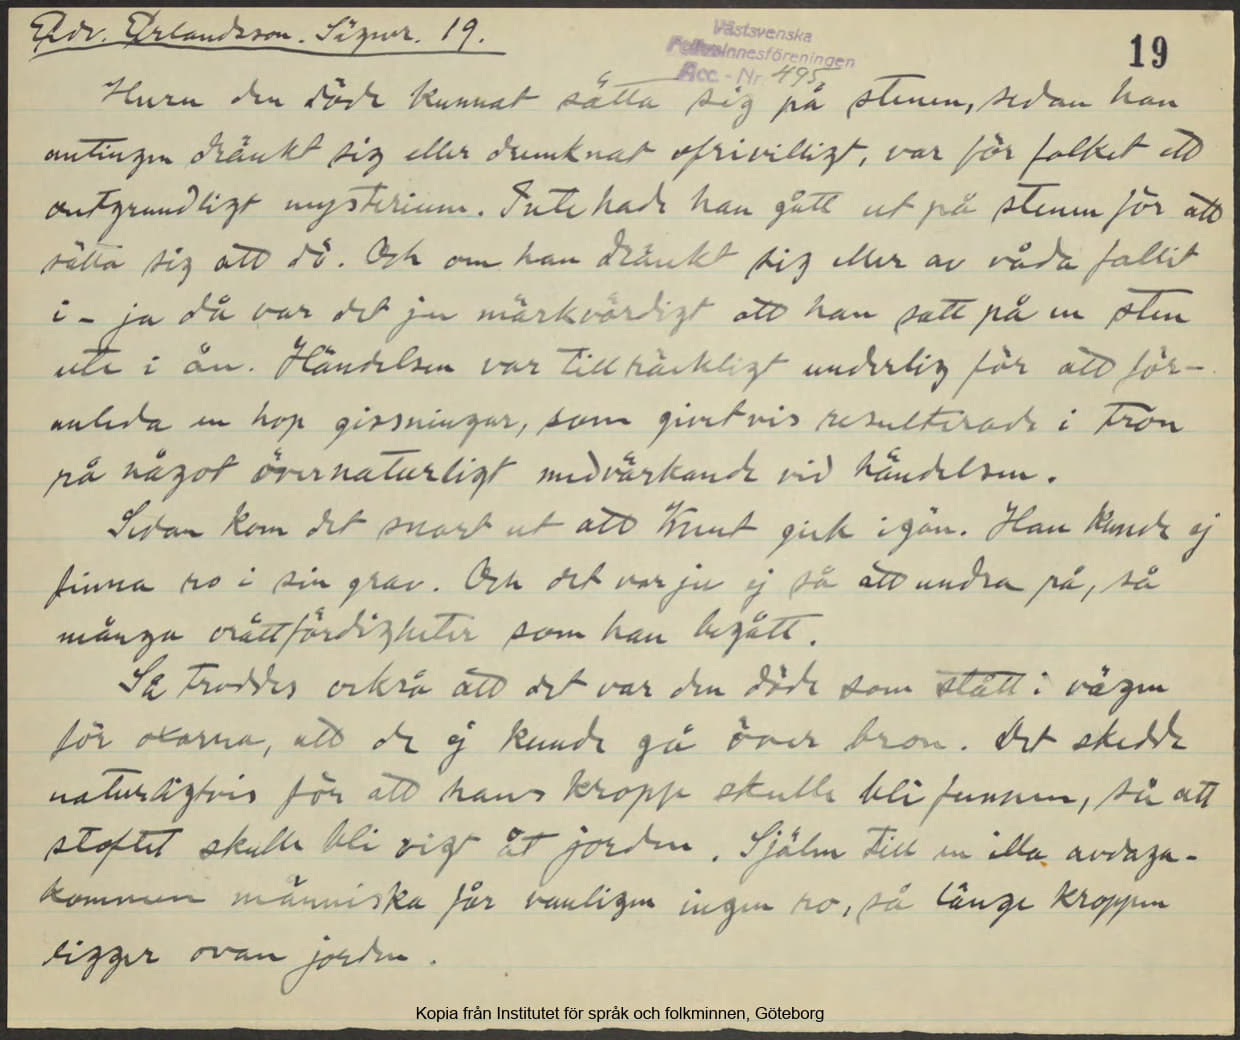 Edv. Erlandsson. Sägner. 19.
Västsvenska
Folkminnesföreningen
Acc. - Nr 495.
19
Huru den döde kunnat sätta sig på stenen, sedan han
antingen dränkt sig eller drunknat ofrivilligt, var för folket ett
outgrundligt mysterium. Inte hade han gått ut på stenen för att
sätta sig att dö. Och om han dränkt sig eller av våda fallit
i - ja då var det ju märkvärdigt att han satt på en sten
ute i ån. Händelsen var tillräckligt underlig för att för-
anleda en hop gissningar, som givetvis resulterade i tron
på något övernaturligt medvärkande vid händelsen.
Sedan kom det snart ut att Knut gick igän. Han kunde ej
finna ro i sin grav. Och det var ju ej så att undra på, så
många orättfärdigheter som han begått.
Så troddes också att det var den döde som stått i vägen
för oxarna, att de ej kunde gå över bron. Det skedde
naturligtvis för att hans kropp skulle bli funnen, så att
stoftet skulle bli vigt åt jorden. Själen till en illa avdaga-
kommen människa får vanligen ingen ro, så länge kroppen
ligger ovan jorden.
Kopia från Institutet för språk och folkminnen, Göteborg